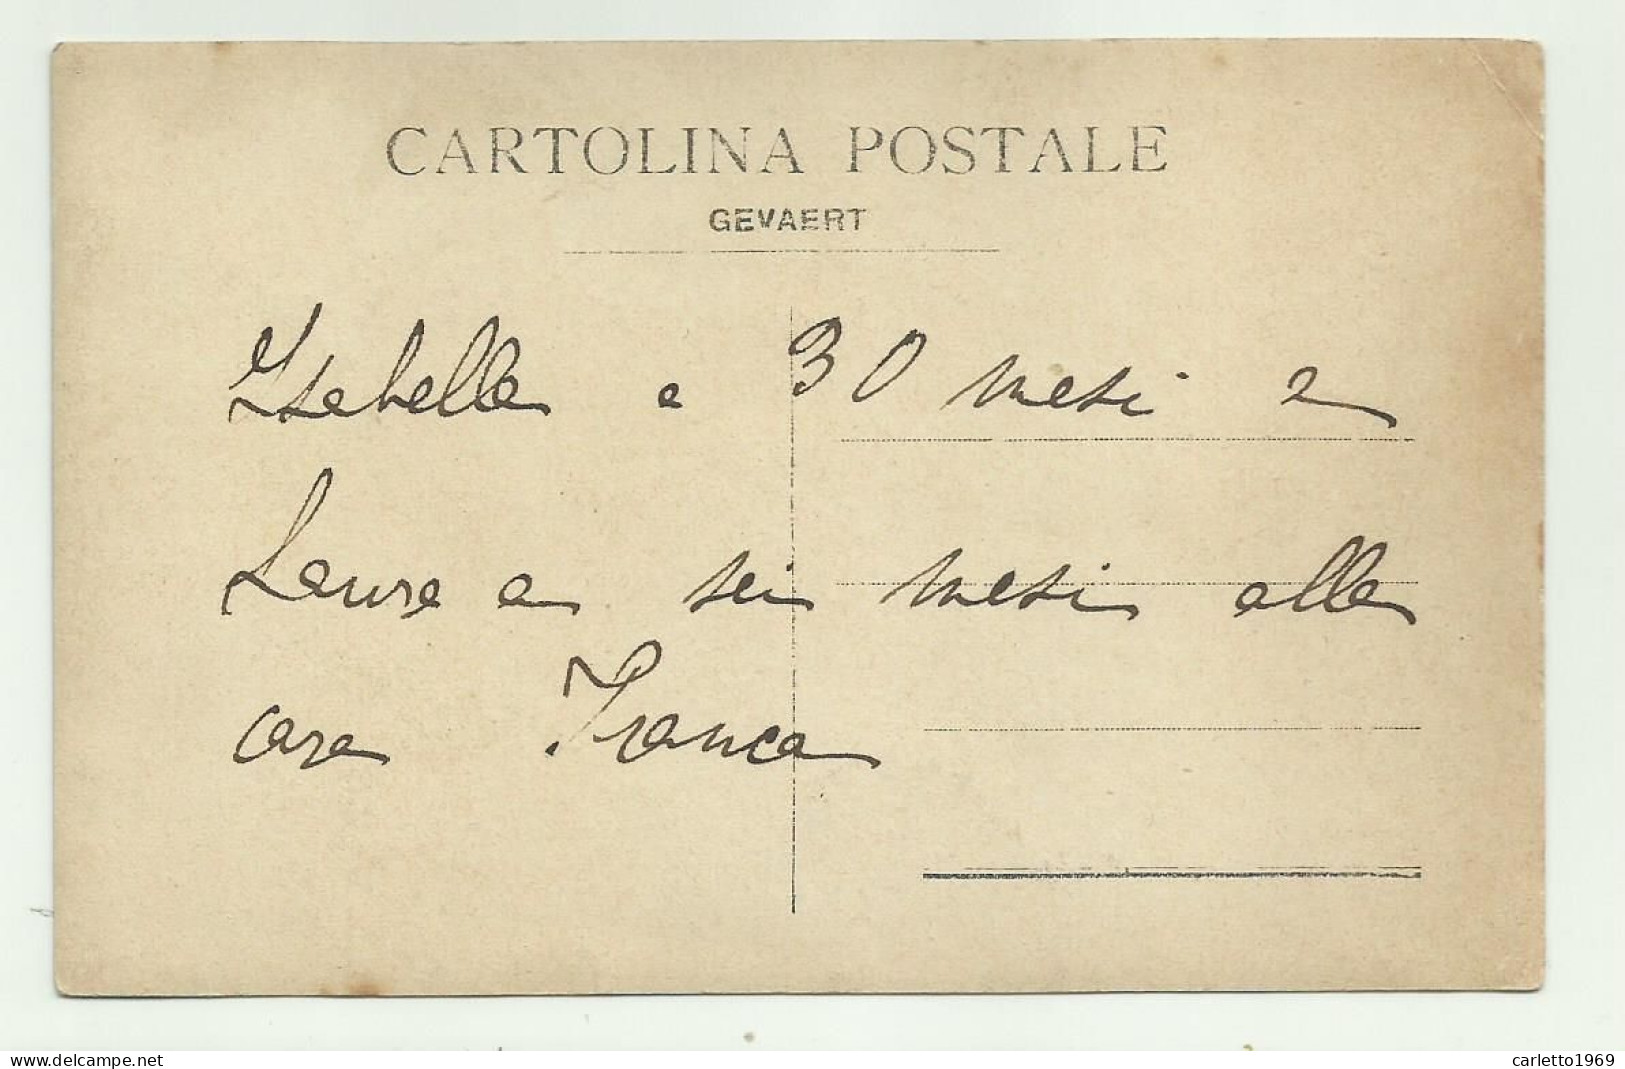 CARTOLINA POSTALE
GEVAERT
Isabella a 30 mesi e
Laura a sei mesi alla
cara Franca
www.delcampe.net
carletto1969